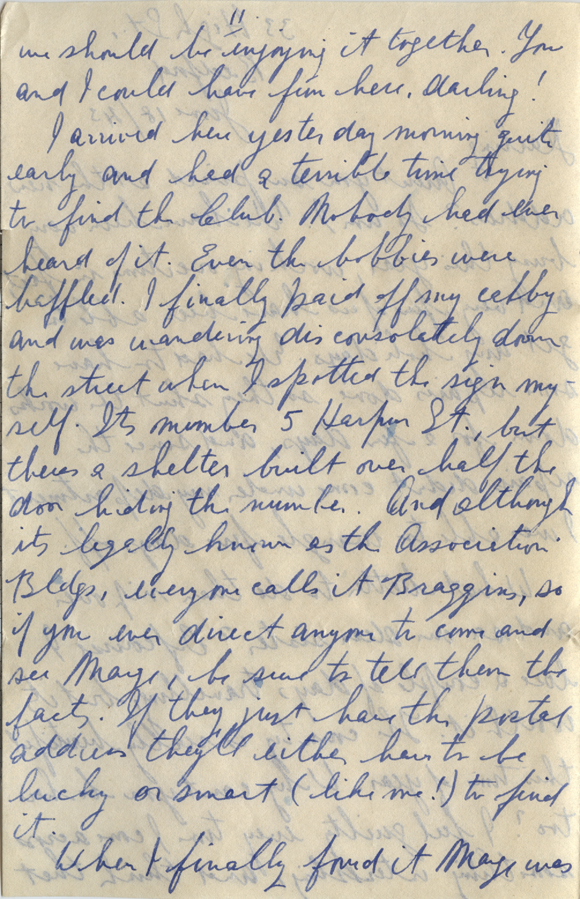 11
we should be enjoying it together. You
and I could have fun here, darling!
I arrived here yesterday morning quite
early and had a terrible time trying
to find the Club. Nobody had ever
heard of it. Even the bobbies were
baffled. I finally paid off my cabby
and was wandering disconsolately down
the street when I spotted the sign my
self. Its number 5 Harpur St., but
theres a shelter built over half the
door hiding the number. And although
its legally known as the Association
Bldgs, everyone calls it Braggins, so
if you ever direct anyone to come and
see Marge, be sure to tell them the
facts. If they just have the postal
address they'll either have to be
lucky or smart (like me!) to find
it.
When I finally found it Marge was